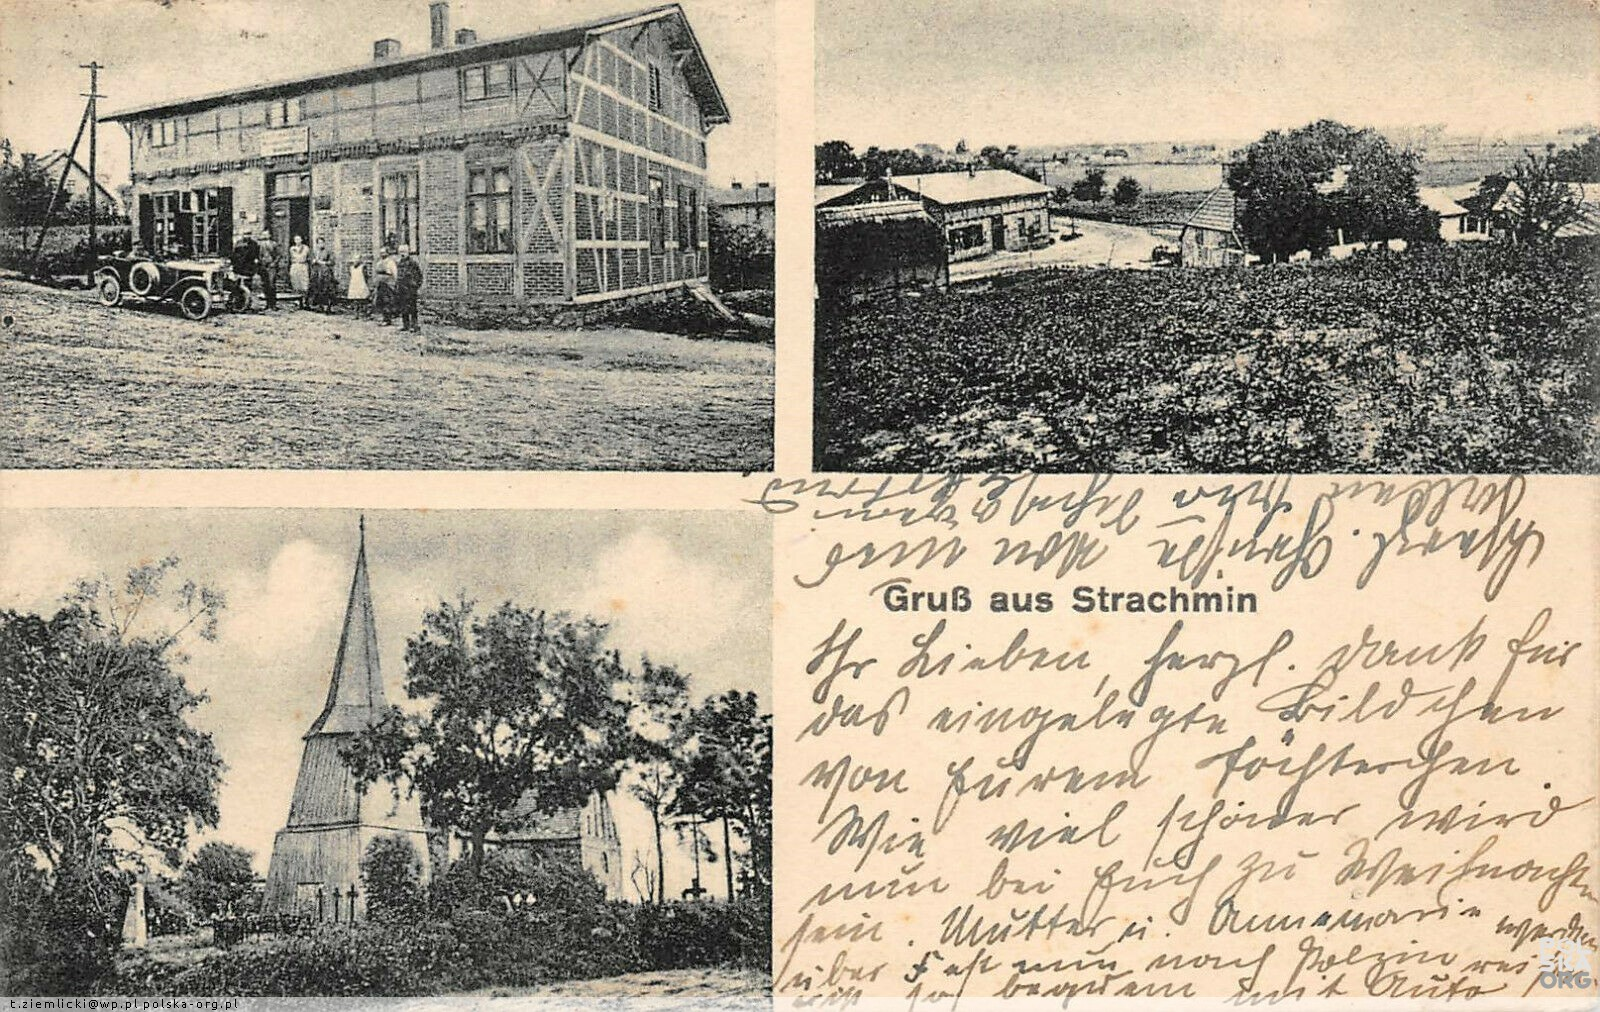 Gruß aus Strachmin
Ihr Lieben, herzl. Dank für
das eingelegte Bildchen
von Eurem Töchterchen.
Wie viel schöner wird
nun bei Euch zu Weihnachten
sein. Mutter u. Annemarie werden
über Fest nun nach Polzin
so bequem mit Auto
t.ziemlicki@wp.pl polska-org.pl
ORG